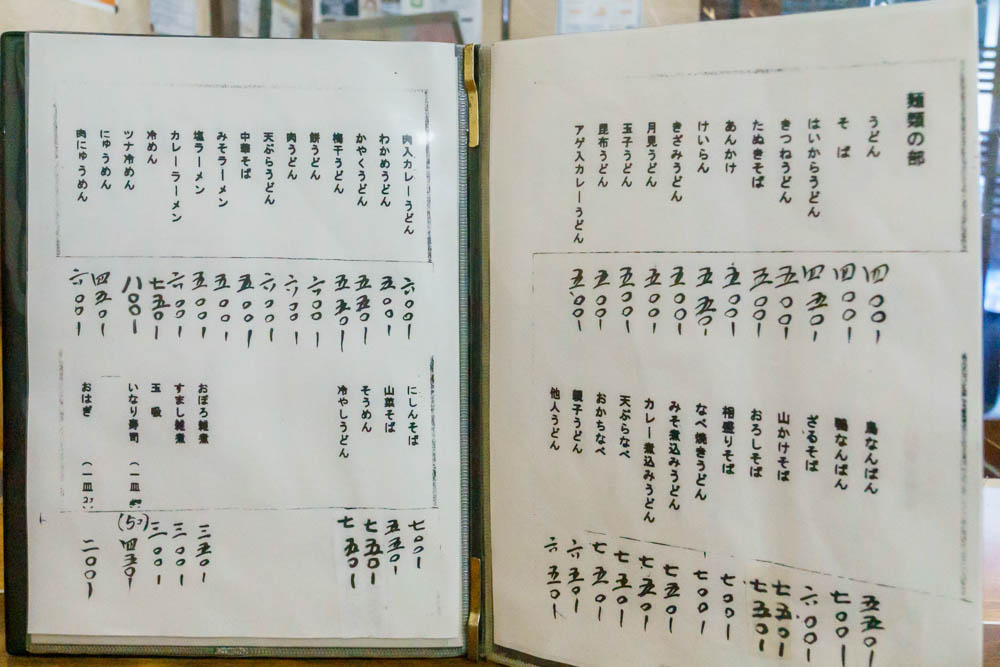 麺類の部
うどん 四〇〇ー
そば 四〇〇ー
はいからうどん 四五〇ー
きつねうどん 五〇〇ー
たぬきそば 五〇〇ー
あんかけ 五〇〇ー
けいらん 五五〇ー
きざみうどん 五〇〇ー
月見うどん 五〇〇ー
玉子うどん 五〇〇ー
昆布うどん 五〇〇ー
アゲ入カレーうどん 五〇〇ー
鳥なんばん 五五〇ー
鴨なんばん 七〇〇ー
ざるそば 六〇〇ー
山かけそば 七五〇ー
おろしそば 七五〇ー
相盛りそば 七〇〇ー
なべ焼きうどん 七〇〇ー
みそ煮込みうどん 七五〇ー
カレー煮込みうどん 七五〇ー
天ぷらなべ 七五〇ー
おかちなべ 七五〇ー
親子うどん 六五〇ー
他人うどん 六五〇ー
肉入カレーうどん 六〇〇ー
わかめうどん 五〇〇ー
かやくうどん 五五〇ー
梅干うどん 五五〇ー
餅うどん 六〇〇ー
肉うどん 六〇〇ー
天ぷらうどん 六〇〇ー
中華そば 五〇〇ー
みそラーメン 五〇〇ー
塩ラーメン 五〇〇ー
カレーラーメン 六〇〇ー
冷めん 七五〇ー
ツナ冷めん 八〇〇ー
にゅうめん 四五〇ー
肉にゅうめん 六〇〇ー
にしんそば 七〇〇ー
山菜そば 五五〇ー
そうめん 七五〇ー
冷やしうどん 七五〇ー
おぼろ雑煮 三五〇ー
すまし雑煮 三〇〇ー
玉吸 三〇〇ー
いなり寿司（一皿 (5コ) 四五〇ー
おはぎ（一皿 二〇〇ー